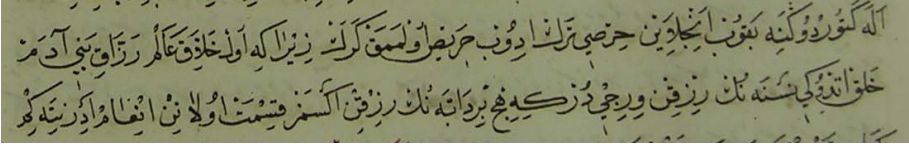 الله كتوردوكنه بقوب انجلاوين حرصي ترك ادوب حريص اولممق كرك زيرا كه اول خلاق عالم رزاق بني آدم در
خلق اتدوكي نسنه نك رزقن ويرجي در كه هيچ بر دابه نك رزقن اكسمز قسمت اولانن انعام ادر نيته كم